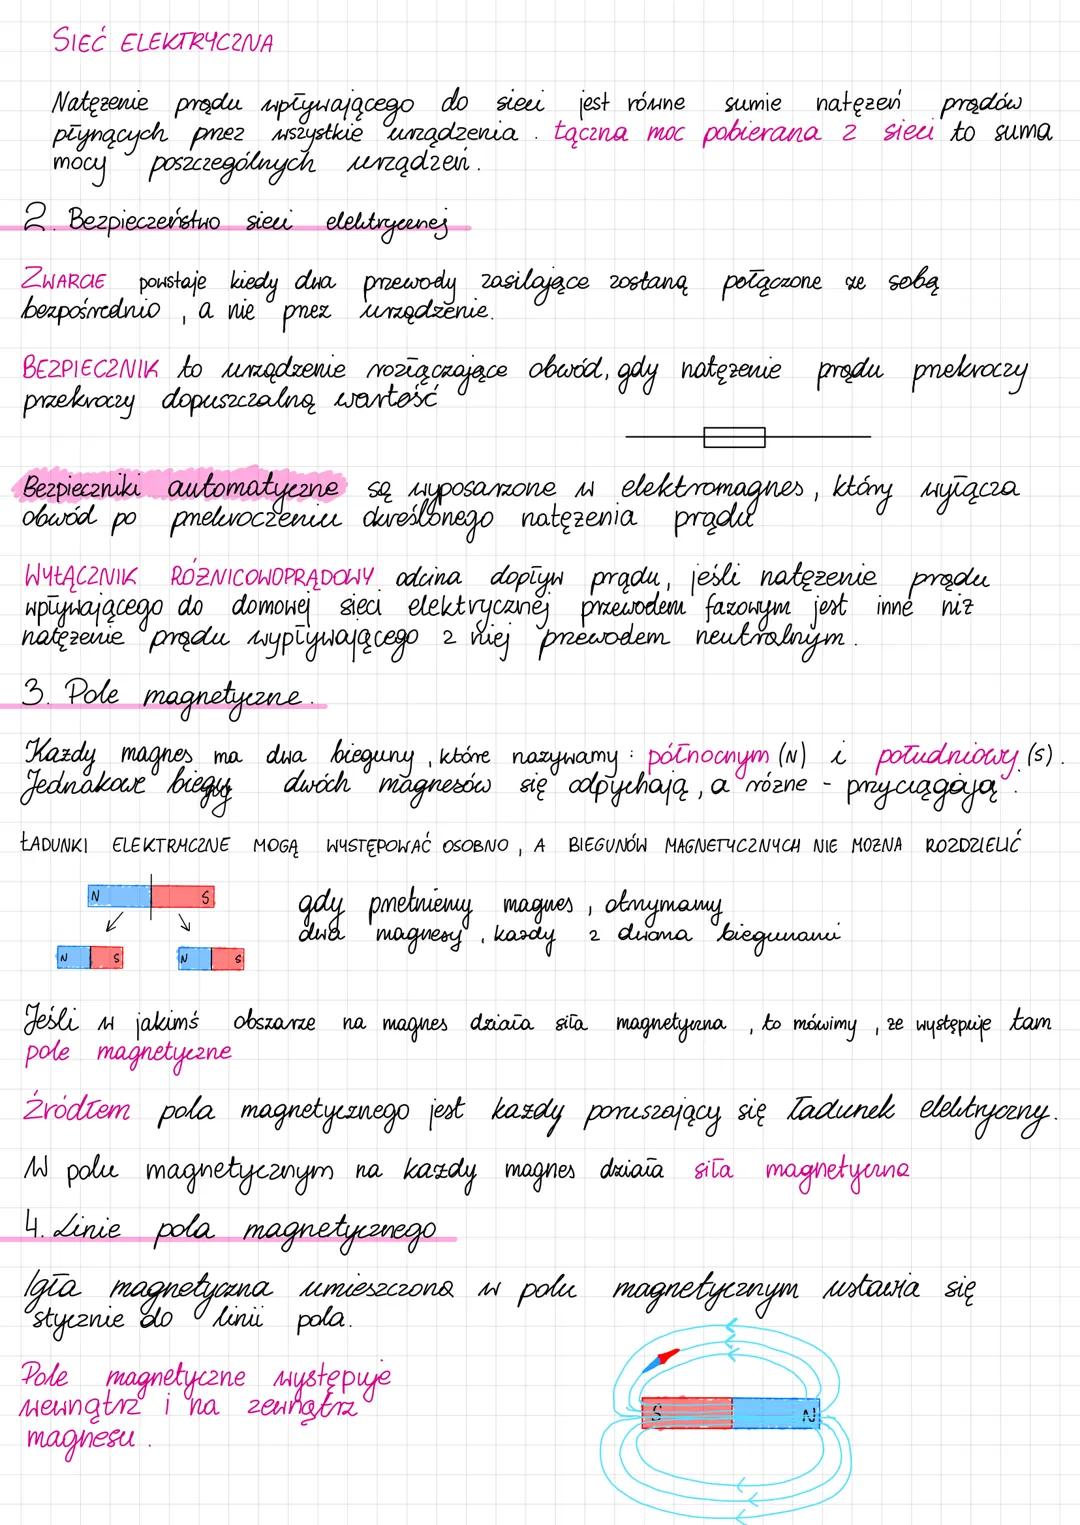 SIEĆ ELEKTRYCZNA
Natężenie prądu wpływającego do sieci jest równe sumie natężeń prądów
płynących przez wszystkie urządzenia. Łączna moc pobierana z sieci to suma
mocy poszczególnych urządzeń.
2. Bezpieczeństwo sieci elektrycznej
ZWARCIE powstaje kiedy dwa przewody zasilające zostaną połączone ze sobą
bezpośrednio, a nie przez urządzenie.
BEZPIECZNIK to urządzenie rozłączające obwód, gdy natężenie prądu przekroczy
przekroczy dopuszczalną wartość
Bezpieczniki automatyczne są wyposarzone w elektromagnes, który wyłącza
obwód po przekroczeniu określonego natężenia prądu
WYŁĄCZNIK RÓŻNICOWOPRĄDOWY odcina dopływ prądu, jeśli natężenie prądu
wpływającego do domowej sieci elektrycznej przewodem fazowym jest inne niż
natężenie prądu wypływającego z niej przewodem neutralnym.
3. Pole magnetyczne.
Każdy magnes ma dwa bieguny, które nazywamy: północnym (N) i południowy (S).
Jednakowe bieguny dwóch magnesów się odpychają, a różne - przyciągają.
ŁADUNKI ELEKTRYCZNE MOGĄ WYSTĘPOWAĆ OSOBNO, A BIEGUNÓW MAGNETYCZNYCH NIE MOŻNA ROZDZIELIĆ
N S
gdy przetniemy magnes, otrzymamy
dwa magnesy, każdy z dwoma biegunami
N S N S
Jeśli w jakimś obszarze na magnes działa siła magnetyczna, to mówimy, że występuje tam
pole magnetyczne
Źródłem pola magnetycznego jest każdy poruszający się ładunek elektryczny.
W polu magnetycznym na każdy magnes działa siła magnetyczna
4. Linie pola magnetycznego
Igła magnetyczna umieszczona w polu magnetycznym ustawia się
stycznie do linii pola.
Pole magnetyczne występuje
wewnątrz i na zewnątrz
magnesu.
S N